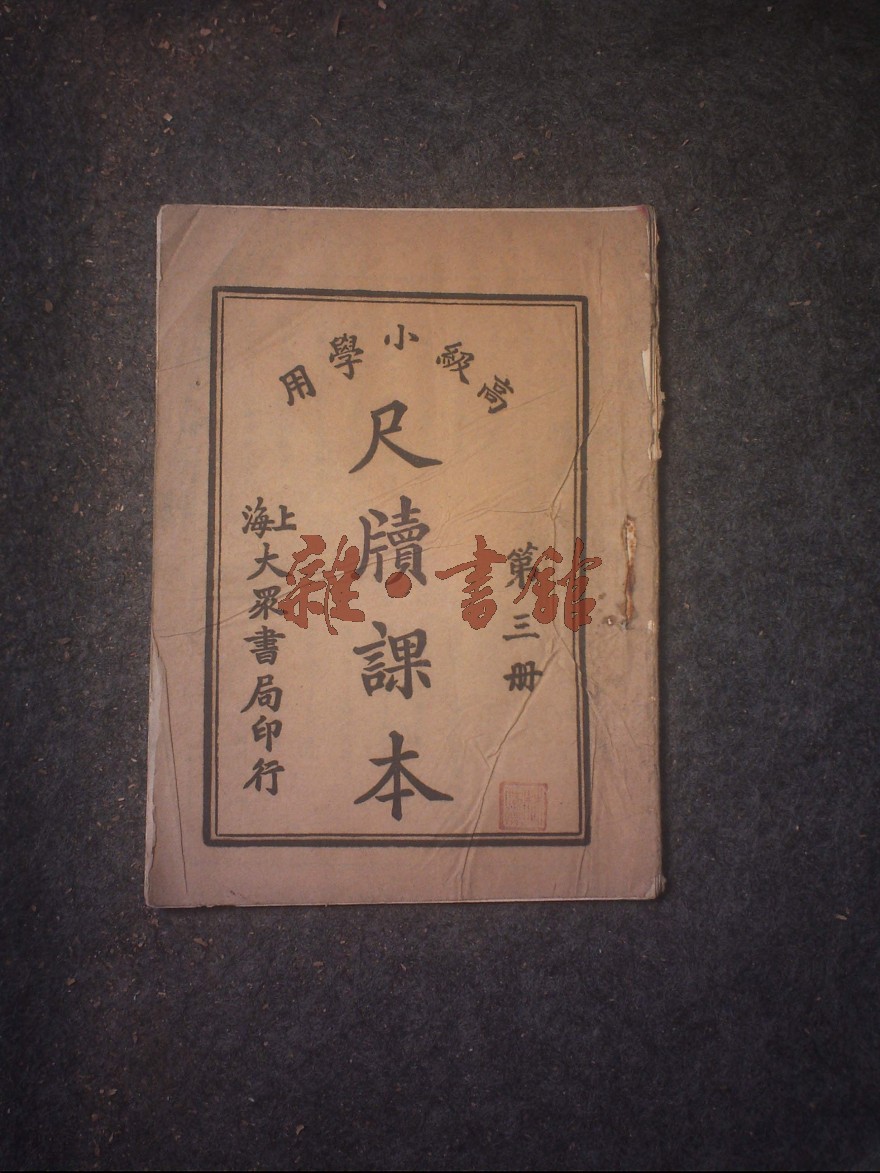 高級小學用
尺牘課本
第三册
上海大眾書局印行
雜·書館